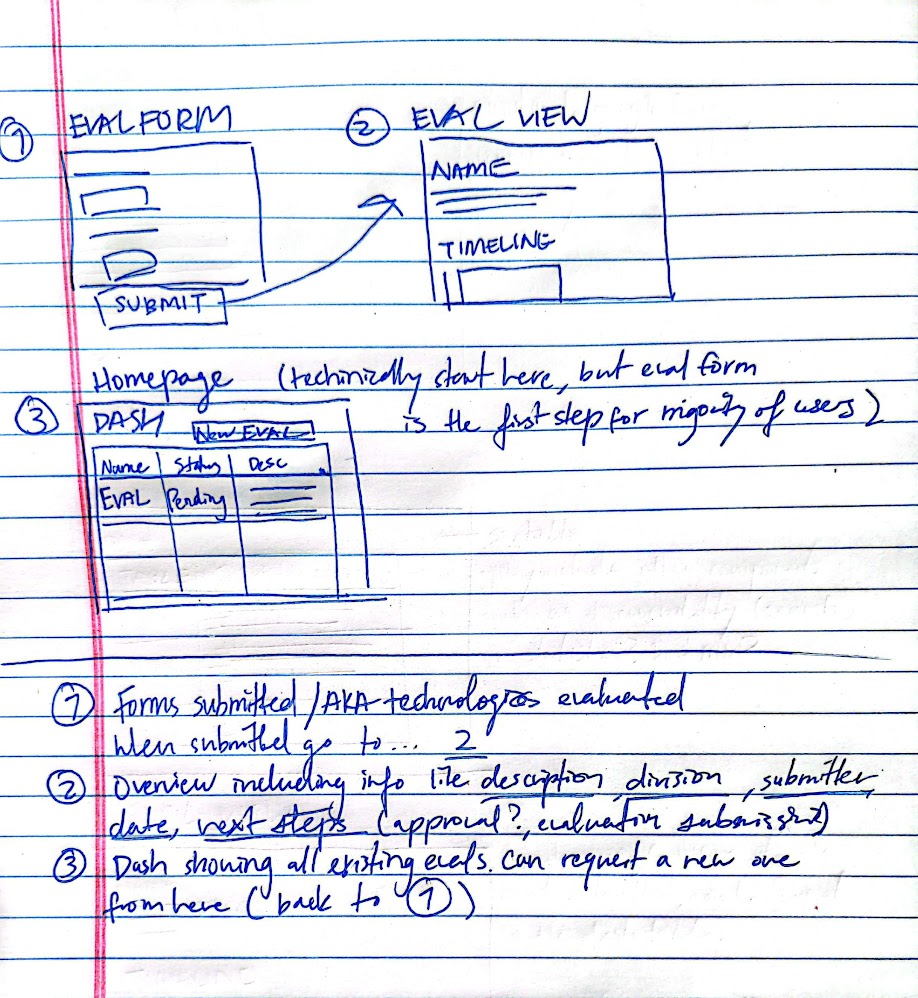 ① EVAL FORM
SUBMIT
② EVAL VIEW
NAME
TIMELINE
Homepage (techinically start here, but eval form
is the first step for migority of users)
③ DASH
New EVAL
Name Status Desc
EVAL Pending
① Forms submitted /AKA technologies evaluated
When submitted go to... 2
② Overview including info like description, division, submitter,
date, next steps (approval?, evaluation submission?)
③ Dash showing all existing evals. Can request a new one
from here (back to ①)